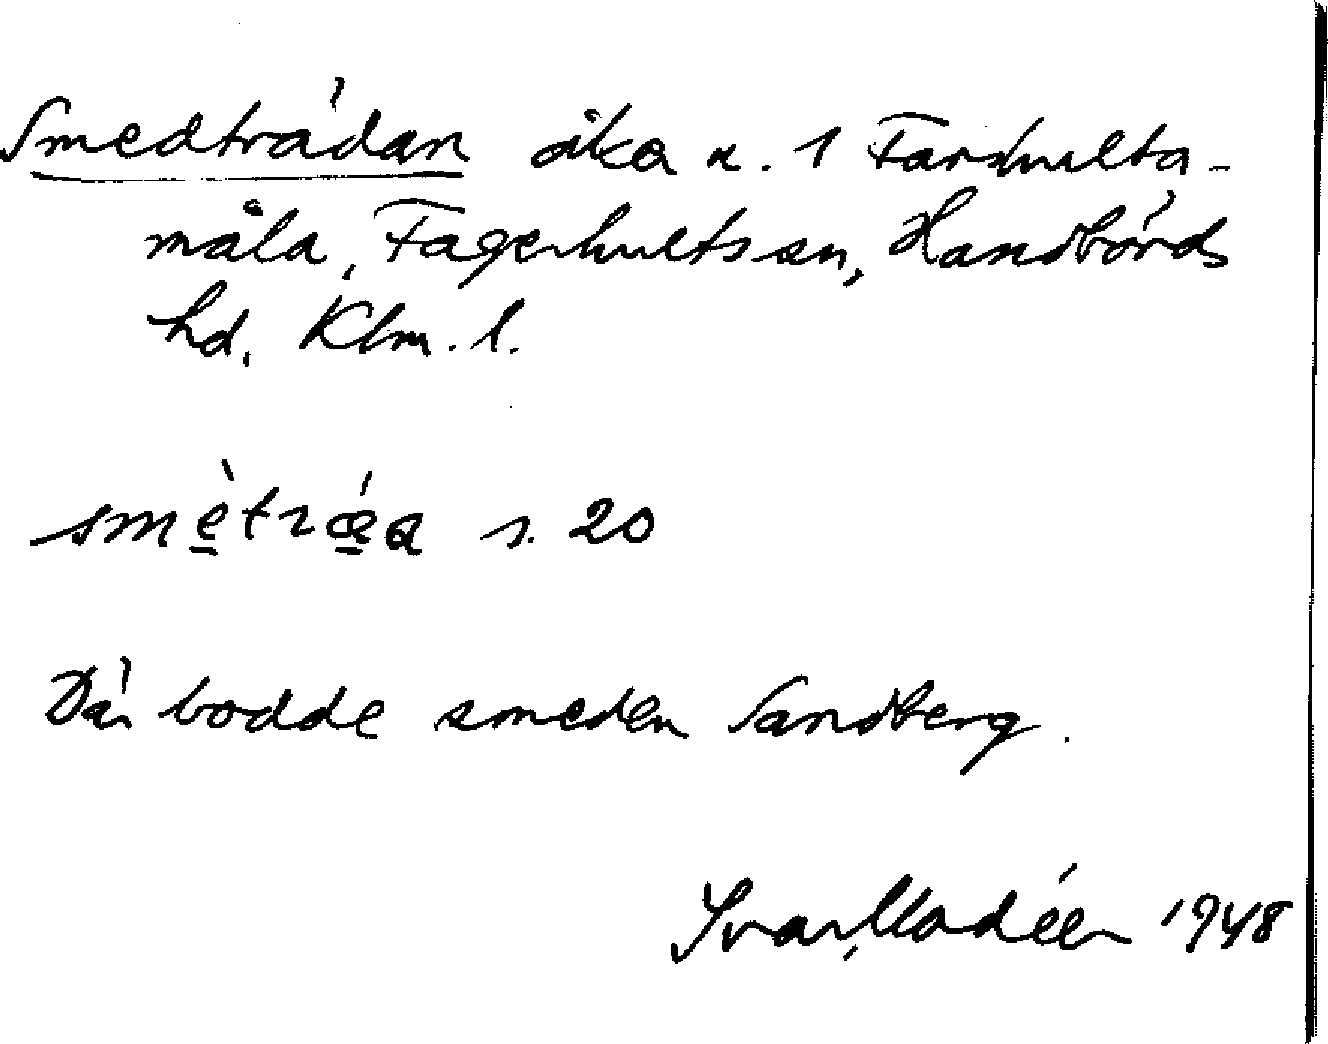 Smedträdan åker n. 1 Farhulta-
måla, Fagerhults sn, Handbörds
hd. Klm. l.
smètrǽa s. 20
Där bodde smeden Sandberg.
Ivar Modéer 1948